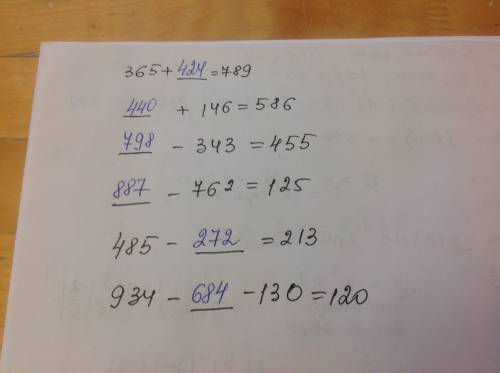 365+424=789
440 + 146=586
798 - 343 = 455
887 - 762 = 125
485 - 272 = 213
934 - 684 - 130 = 120